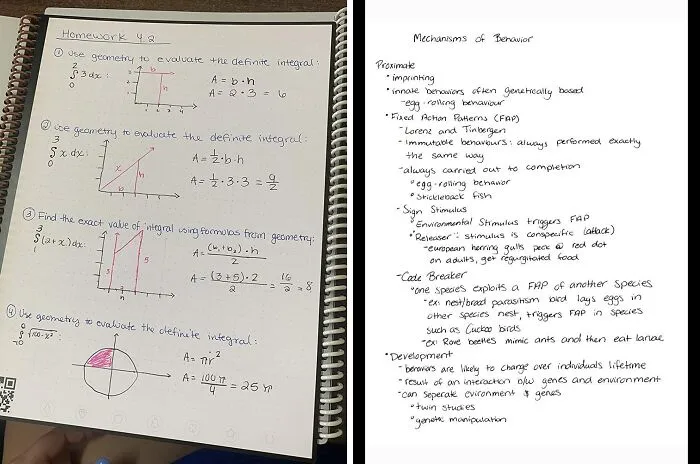 Homework 4.2
① Use geometry to evaluate the definite integral:
2
∫ 3 dx :
0
b
h
A = b·h
A = 2·3 = 6
② Use geometry to evaluate the definite integral:
3
∫ x dx :
0
x
h
b
A = 1/2 · b·h
A = 1/2 · 3·3 = 9/2
③ Find the exact value of integral using formulas from geometry:
3
∫ (2+x) dx :
1
3
5
h
A = (b₁+b₂)·h / 2
A = (3+5)·2 / 2 = 16/2 = 8
④ Use geometry to evaluate the definite integral:
0
∫ √100-x² :
-10
A = πr²
A = 100π/4 = 25π
Mechanisms of Behavior
Proximate
• imprinting
• innate behaviors often genetically based
- egg-rolling behaviour
• Fixed Action Patterns (FAP)
- Lorenz and Tinbergen
- immutable behaviours: always performed exactly
the same way
- always carried out to completion
• egg-rolling behavior
• Stickleback fish
- Sign Stimulus
• Environmental Stimulus triggers FAP
• Releaser: stimulus is conspecific (attack)
- european herring gulls peck @ red dot
on adults, get regurgitated food
- Code Breaker
• one species exploits a FAP of another species
- ex: nest/brood parasitism bird lays eggs in
other species nest, triggers FAP in species
such as Cuckoo birds
- ex: Rove beetles mimic ants and then eat larvae
• Development
- behaviors are likely to change over individuals lifetime
- result of an interaction b/w genes and environment
- can seperate evironment & genes
• twin studies
• genetic manipulation